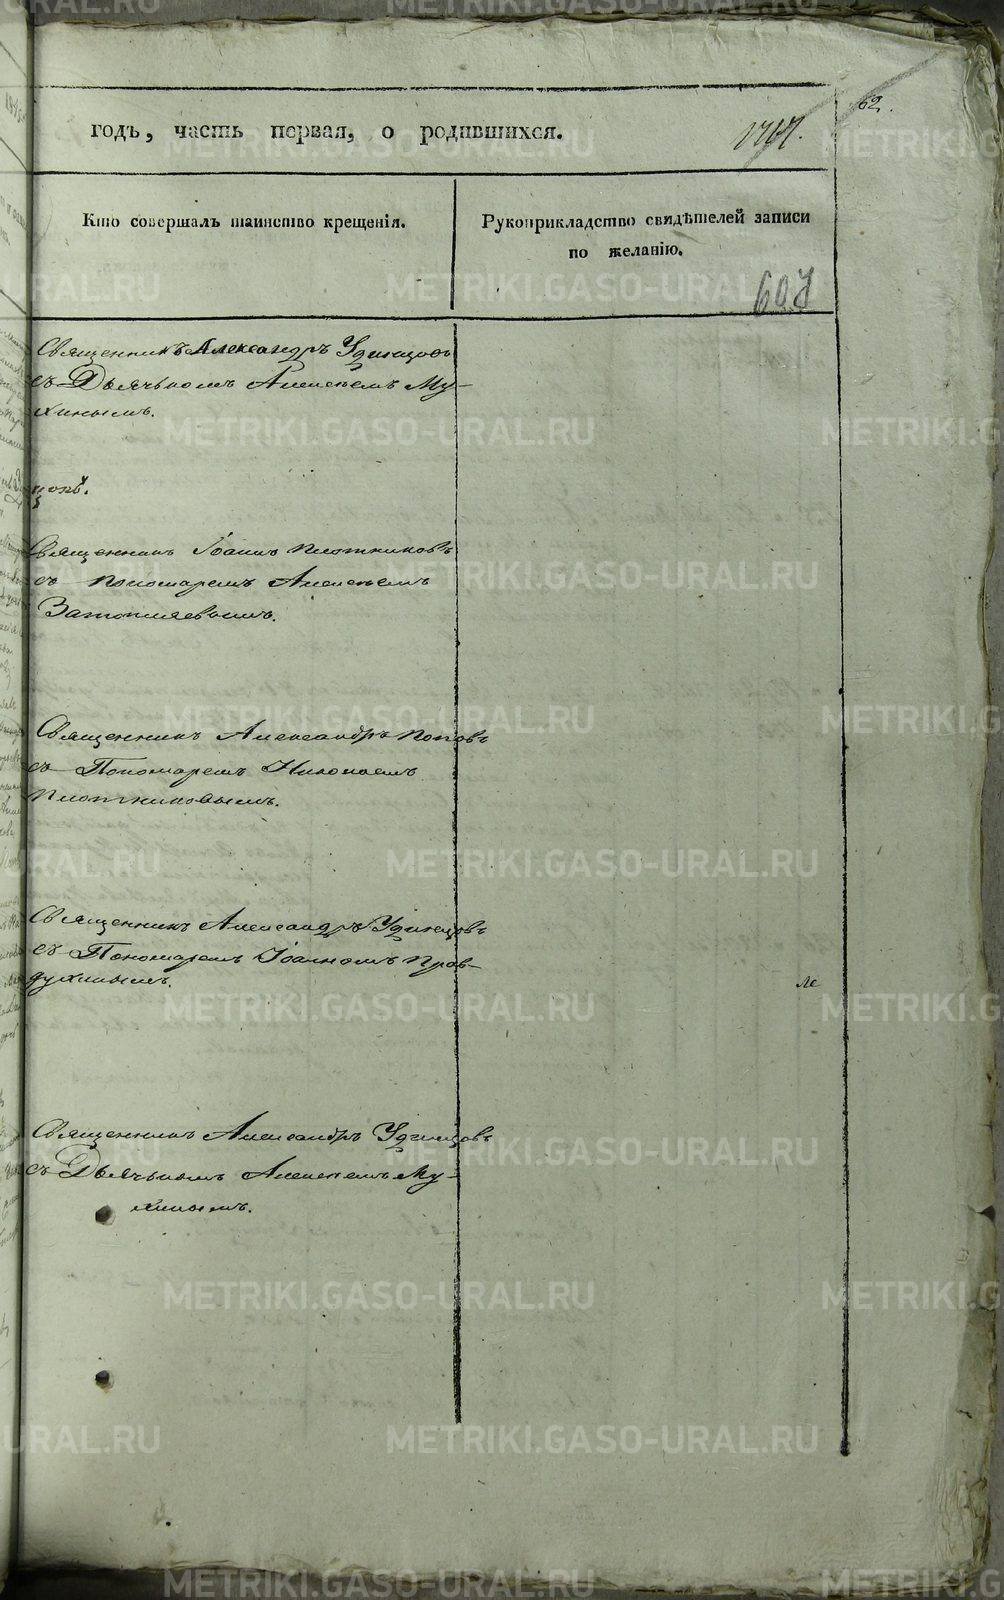 62.
годъ, часть первая, о родившихся.
Кто совершалъ таинство крещенія.
Рукоприкладство свидѣтелей записи
по желанію.
607
Священникъ Александръ Удинцовъ
съ Дьячькомъ Алексѣемъ Му-
хинымъ.
Священникъ Іоаннъ Плотниковъ
съ пономаремъ Алексѣемъ
Затопляевымъ.
Священникъ Александръ Поповъ
съ Пономаремъ Николаемъ
Плотниковымъ.
Священникъ Александръ Удинцовъ
съ Пономаремъ Іоанномъ Прав-
духинымъ.
Священникъ Александръ Удинцовъ
съ Дьячькомъ Алексѣемъ Му-
хинымъ.
METRIKI.GASO-URAL.RU